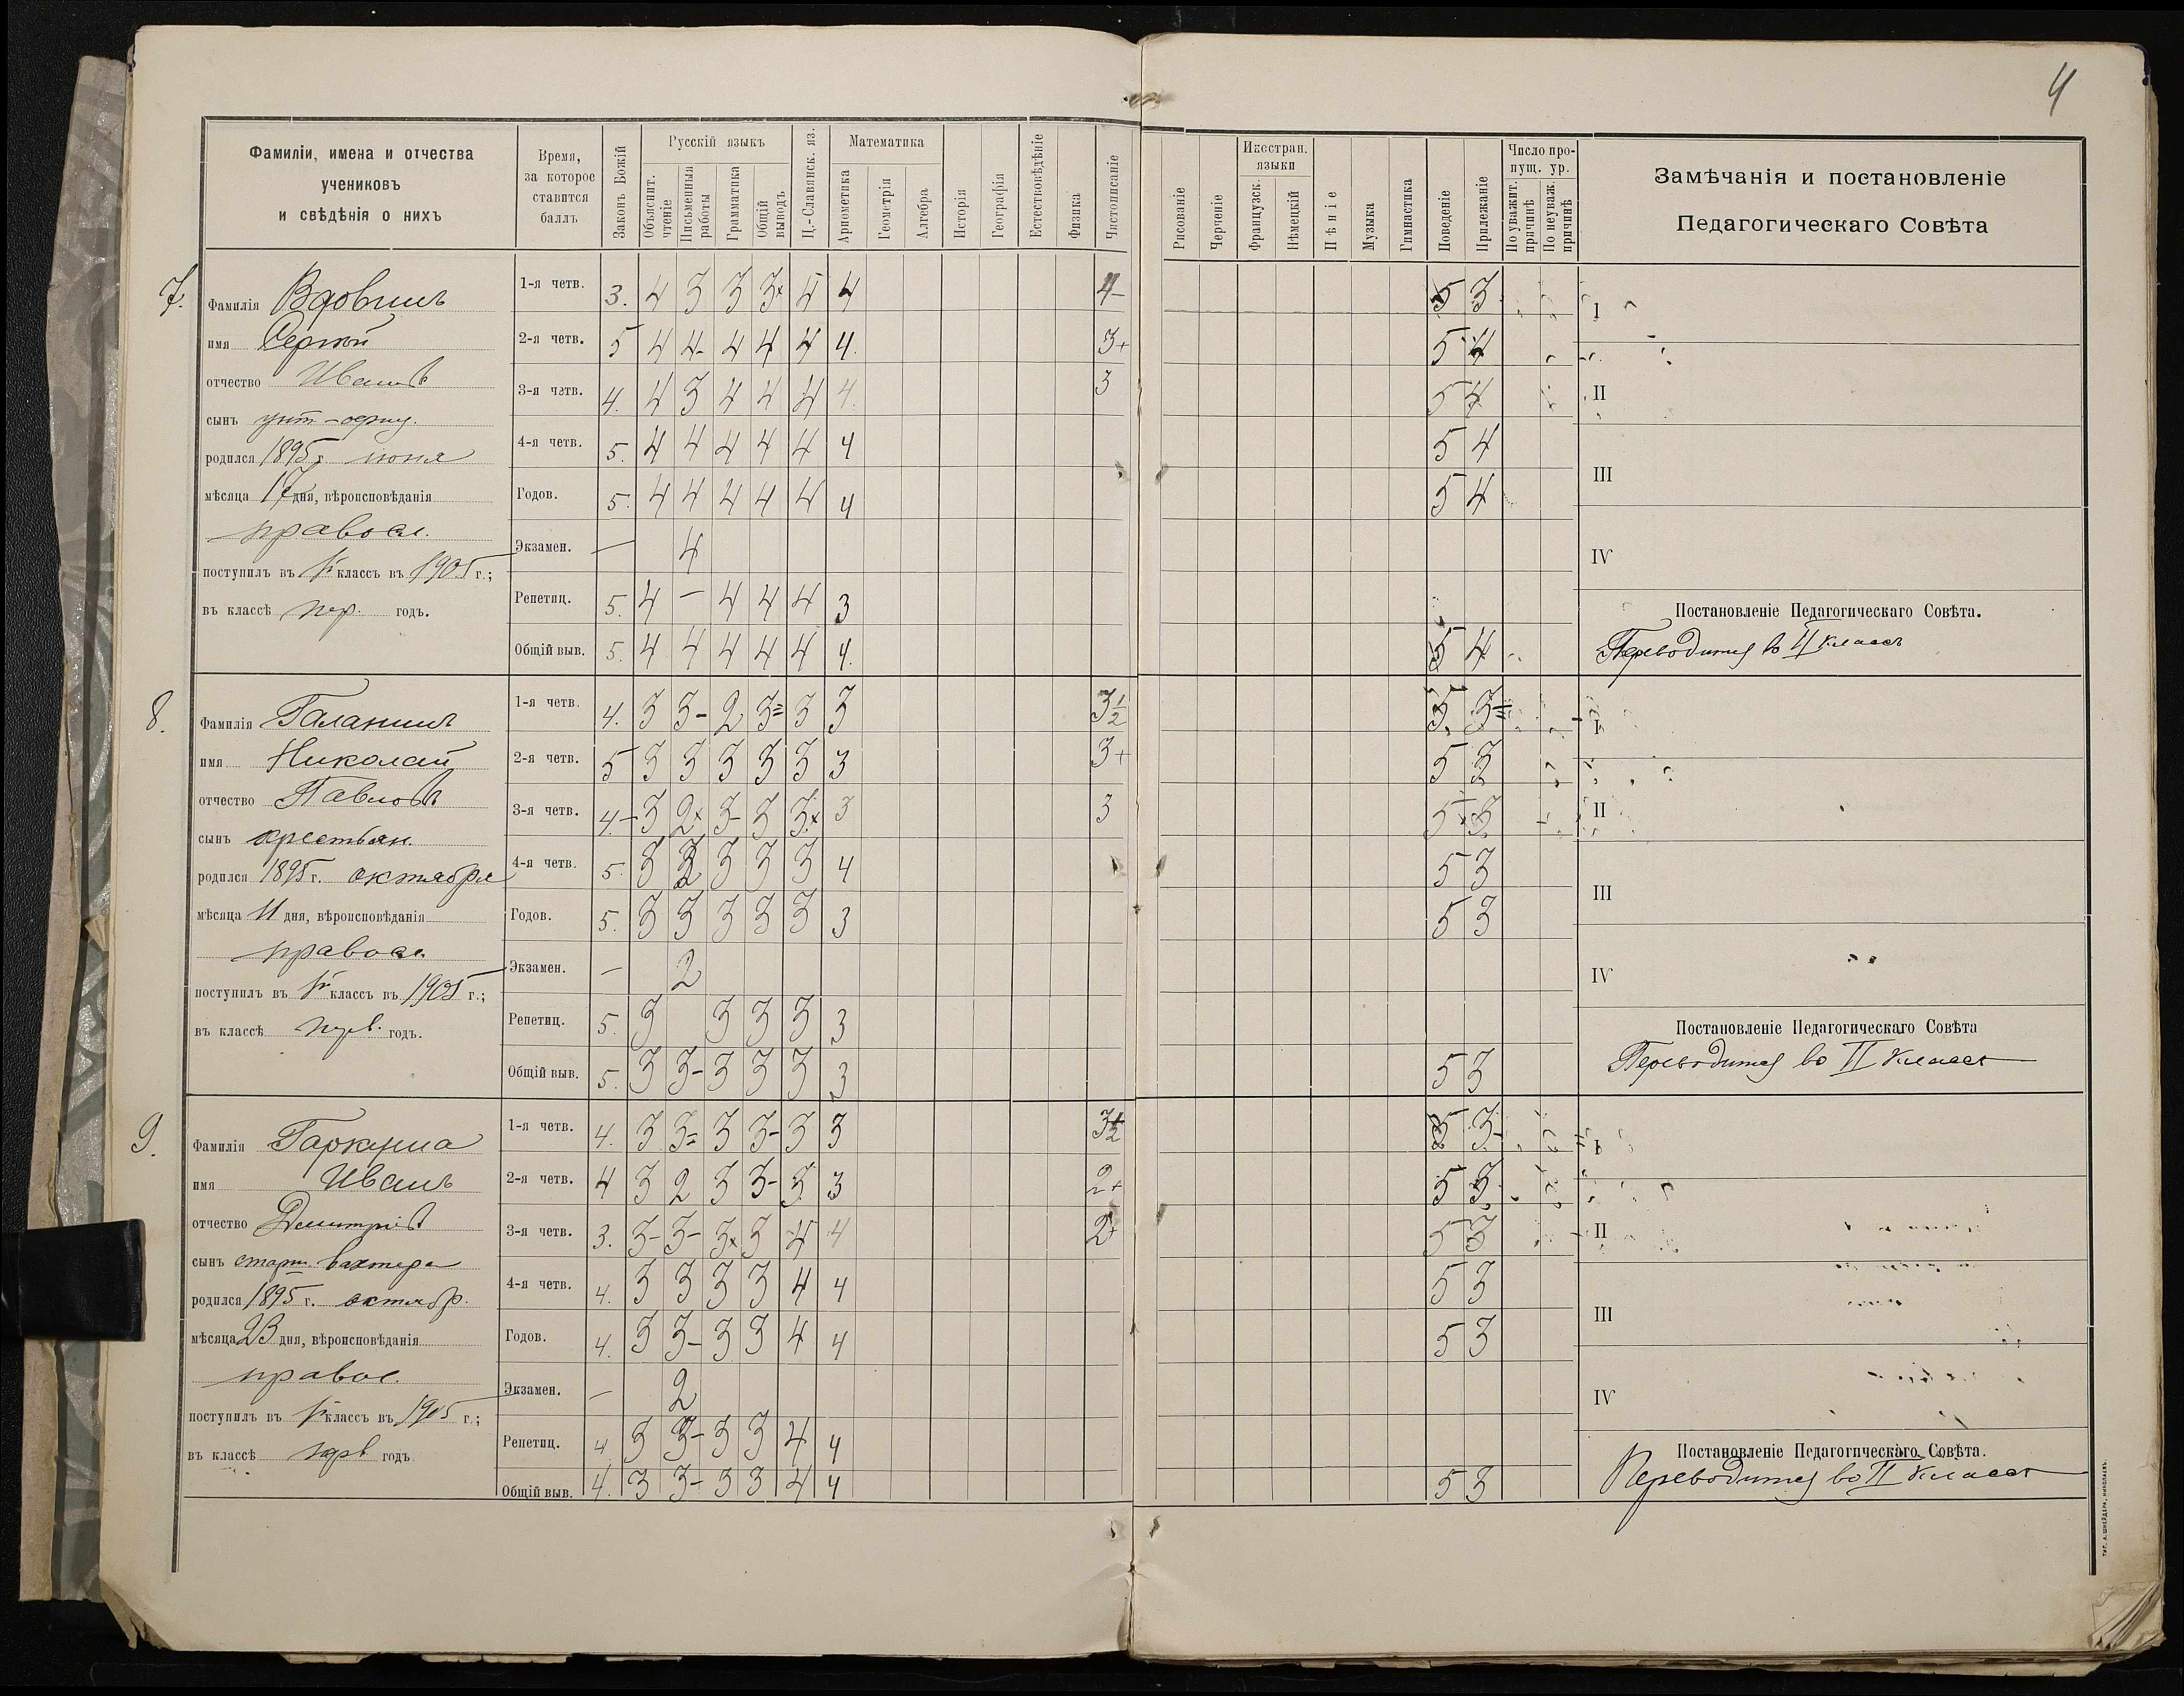 4
Фамиліи, имена и отчества
учениковъ
и свѣдѣнія о нихъ
Время,
за которое
ставится
баллъ
Законъ Божій
Русскій языкъ
Объяснит. чтеніе
Письменныя работы
Грамматика
Общій выводъ
Ц.-Славянск. яз.
Математика
Ариѳметика
Геометрія
Алгебра
Исторія
Географія
Естествовѣдѣніе
Физика
Чистописаніе
Рисованіе
Черченіе
Иностран. языки
Французск.
Нѣмецкій
Пѣніе
Музыка
Гимнастика
Поведеніе
Прилежаніе
Число пропущ. ур.
По уважит. причинѣ
По неуваж. причинѣ
Замѣчанія и постановленіе
Педагогическаго Совѣта
7.
Фамилія Вдовинъ
имя Сергѣй
отчество Иванов
сынъ унт-офиц.
родился 1895 г. іюня
мѣсяца 17 дня, вѣроисповѣданія
правосл.
поступилъ въ 1й классъ въ 1905 г.;
въ классѣ пер. годъ.
1-я четв. 3. 4 3 3 3+ 4 4 4- 5 3
2-я четв. 5 4 4- 4 4 4 4. 3+ 5 4
3-я четв. 4. 4 3 4 4 4 4. 3 5 4
4-я четв. 5. 4 4 4 4 4 4 5 4
Годов. 5. 4 4 4 4 4 4 5 4
Экзамен. — 4
Репетиц. 5. 4 — 4 4 4 3
Общій выв. 5. 4 4 4 4 4 4. 5 4
I
II
III
IV
Постановленіе Педагогическаго Совѣта.
Переводится во II классъ
8.
Фамилія Галанинъ
имя Николай
отчество Павлов
сынъ крестьян.
родился 1895 г. октября
мѣсяца 11 дня, вѣроисповѣданія
правосл.
поступилъ въ 1й классъ въ 1905 г.;
въ классѣ перв. годъ.
1-я четв. 4. 3 3- 2 3= 3 3 3½ 5 3
2-я четв. 5 3 3 3 3 3 3 3+ 5 3
3-я четв. 4- 3 2+ 3- 3 3+ 3 3 5 3
4-я четв. 5. 3 3 3 3 3 4 5 3
Годов. 5. 3 3 3 3 3 3 5 3
Экзамен. — 2
Репетиц. 5. 3 3 3 3 3
Общій выв. 5. 3 3- 3 3 3 3 5 3
I
II
III
IV
Постановленіе Педагогическаго Совѣта
Переводится во II классъ
9.
Фамилія Гаркуша
имя Иванъ
отчество Дмитріев
сынъ старш. вахтера
родился 1895 г. октябр.
мѣсяца 23 дня, вѣроисповѣданія
правос.
поступилъ въ 1й классъ въ 1905 г.;
въ классѣ перв годъ
1-я четв. 4. 3 3= 3 3- 3 3 3½ 5 3-
2-я четв. 4 3 2 3 3- 3 3 2+ 5 3
3-я четв. 3. 3- 3- 3+ 3 4 4 2+ 5 3
4-я четв. 4. 3 3 3 3 4 4 5 3
Годов. 4. 3 3- 3 3 4 4 5 3
Экзамен. — 2
Репетиц. 4 3 3- 3 3 4 4
Общій выв. 4. 3 3- 3 3 4 4 5 3
I
II
III
IV
Постановленіе Педагогическаго Совѣта.
Переводится во II классъ
ТИП. А. ШНЕЙДЕРА, НИКОЛАЕВЪ.